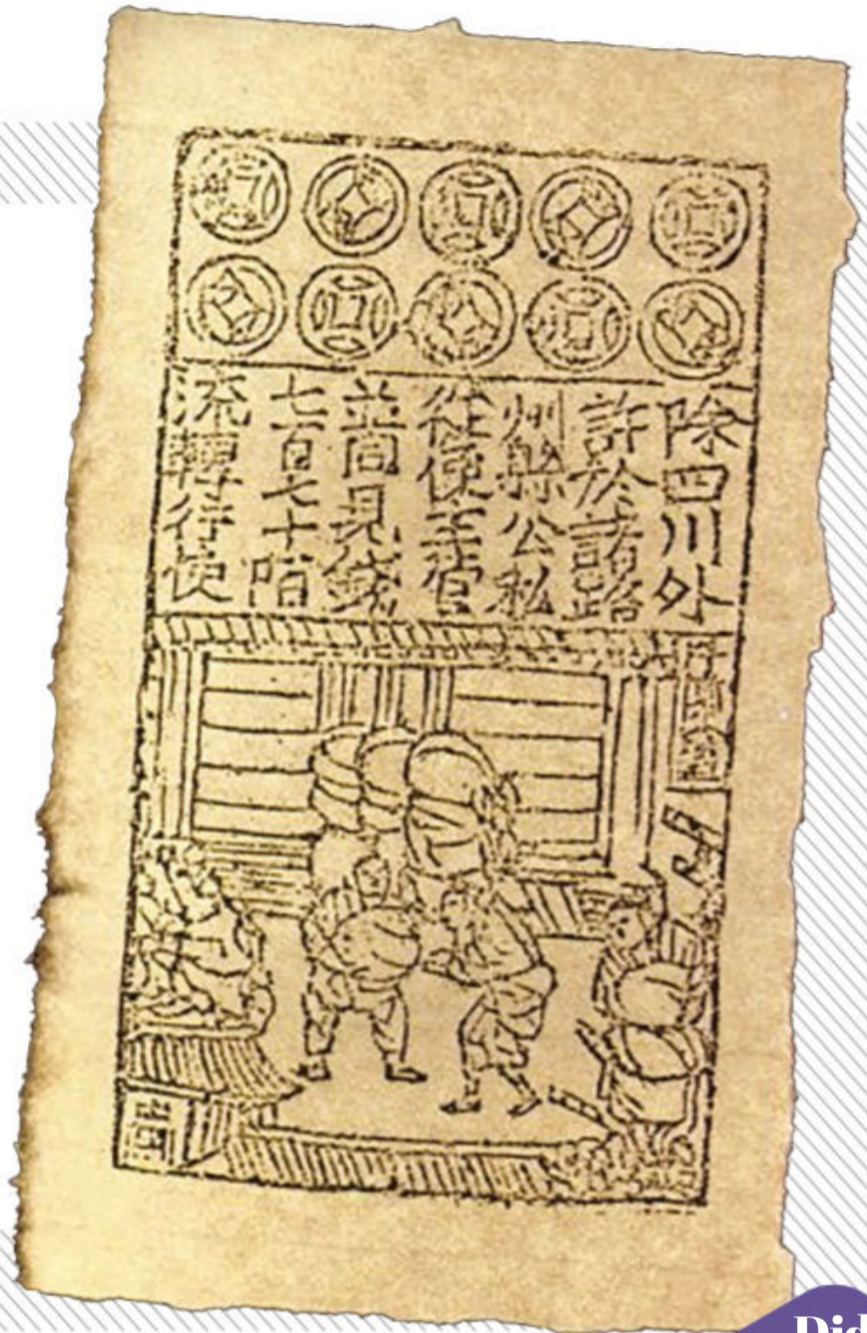 除四川外
許於諸路
州縣公私
從便主管
並同見錢
七百七十陌
流轉行使
千斯倉
Did